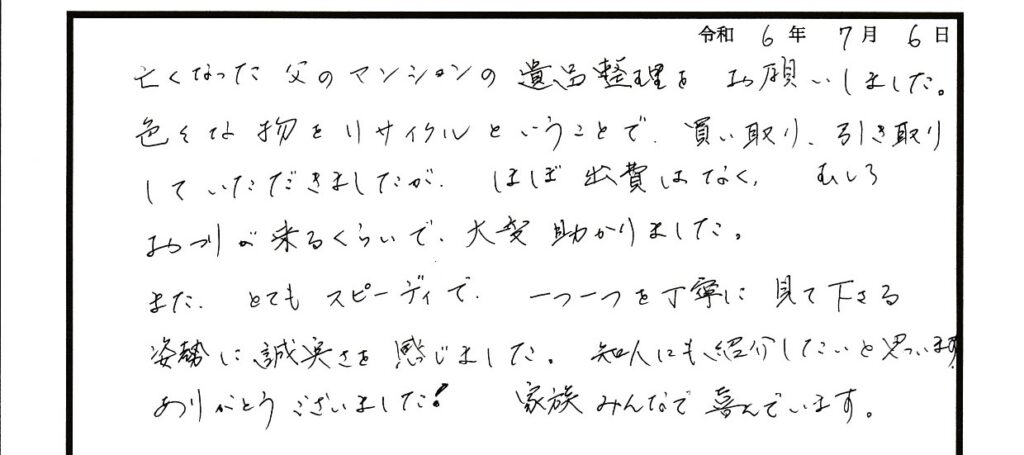 令和 6 年 7 月 6 日
亡くなった父のマンションの遺品整理をお願いしました。
色々な物をリサイクルということで、買い取り、引き取り
していただきましたが、ほぼ出費はなく、むしろ
おつりが来るくらいで、大変助かりました。
また、とてもスピーディで、一つ一つを丁寧に見て下さる
姿勢に誠実さを感じました。知人にも紹介したいと思います。
ありがとうございました! 家族みんなで喜んでいます。